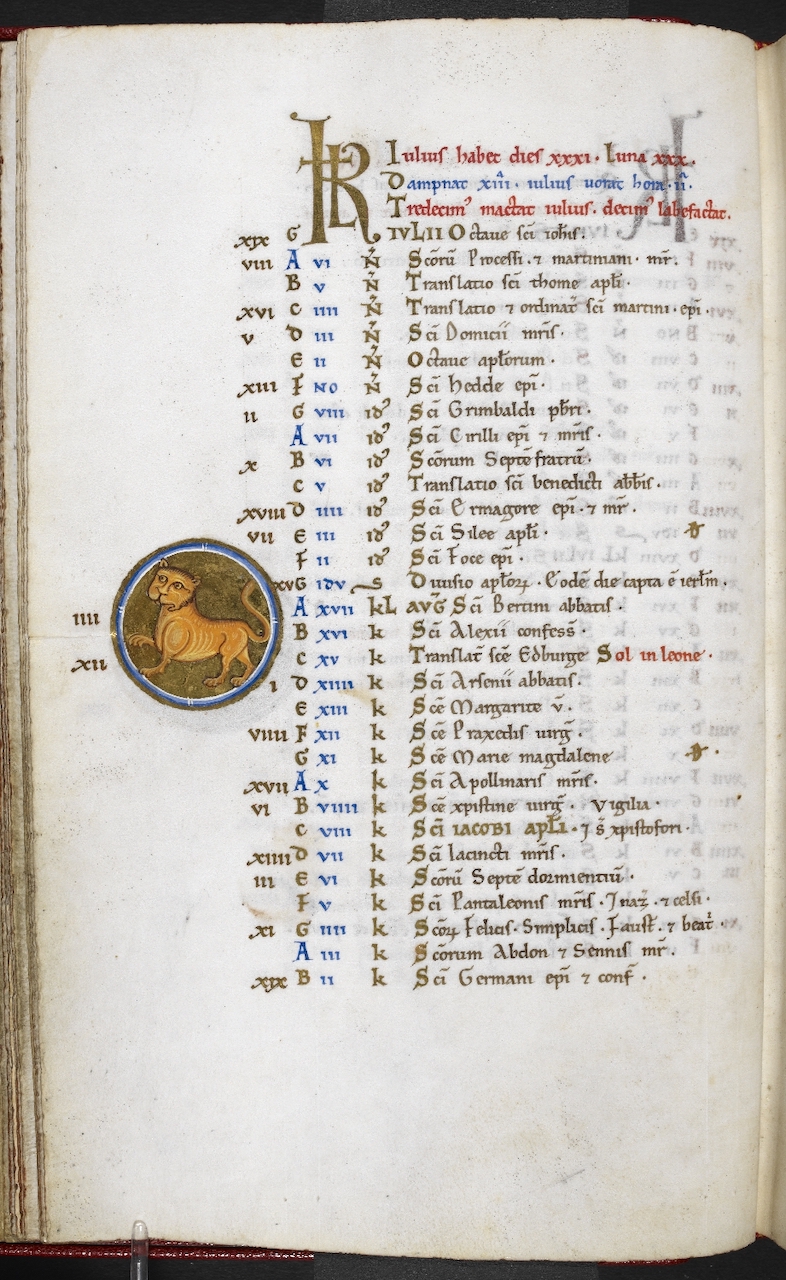 KL Iulius habet dies xxxi. Luna xxx.
Dampnat xiii. iulius uorat hora. ii.
Tredecim⁹ mactat iulius. decim⁹ labefactat.
xix G IVLII Octaue sc̄i ioh̄is.
viii A vi N̄ Scōrū Processi. ⁊ martiniani. mr̄.
B v N̄ Translatio sc̄i thome apl̄i.
xvi C iiii N̄ Translatio ⁊ ordinat̄ sc̄i martini. ep̄i.
v D iii N̄ Sc̄i Domicii mr̄is.
E ii N̄ Octaue apl̄orum.
xiii F NO N̄ Sc̄i hedde ep̄i.
ii G viii id⁹ Sc̄i Grimbaldi pb̄ri.
A vii id⁹ Sc̄i Cirilli ep̄i ⁊ mr̄is.
x B vi id⁹ Scōrum Septē fratrū.
C v id⁹ Translatio sc̄i benedicti abb̄is.
xviii D iiii id⁹ Sc̄i Ermagore ep̄i. ⁊ mr̄.
vii E iii id⁹ Sc̄i Silee apl̄i.
F ii id⁹ Sc̄i Foce ep̄i.
xv G idv s Diuisio apl̄oꝝ. Eodē die capta ē ierl̄m.
iiii A xvii kL AVḠ Sc̄i Bertini abbatis.
B xvi k Sc̄i Alexii confess̄.
xii C xv k Translat̄ sc̄e Edburge Sol in leone.
i D xiiii k Sc̄i Arsenii abbatis.
E xiii k Sc̄e Margarite v̄.
viiii F xii k Sc̄e Praxedis uirḡ.
G xi k Sc̄e Marie magdalene
xvii A x k Sc̄i Apollinaris mr̄is.
vi B viiii k Sc̄e xp̄istine uirḡ. Vigilia.
C viii k Sc̄i IACOBI APL̄I. ⁊ s̄ xp̄istofori.
xiiii D vii k Sc̄i Iacincti mr̄is.
iii E vi k Scōrū Septē dormientiū.
F v k Sc̄i Pantaleonis mr̄is. ⁊ naz̄. ⁊ celsi.
xi G iiii k Scōꝝ Felicis. Simplicis. Faust̄. ⁊ beat̄.
A iii k Scōrum Abdon ⁊ Sennis mr̄.
xix B ii k Sc̄i Germani ep̄i ⁊ conf̄.